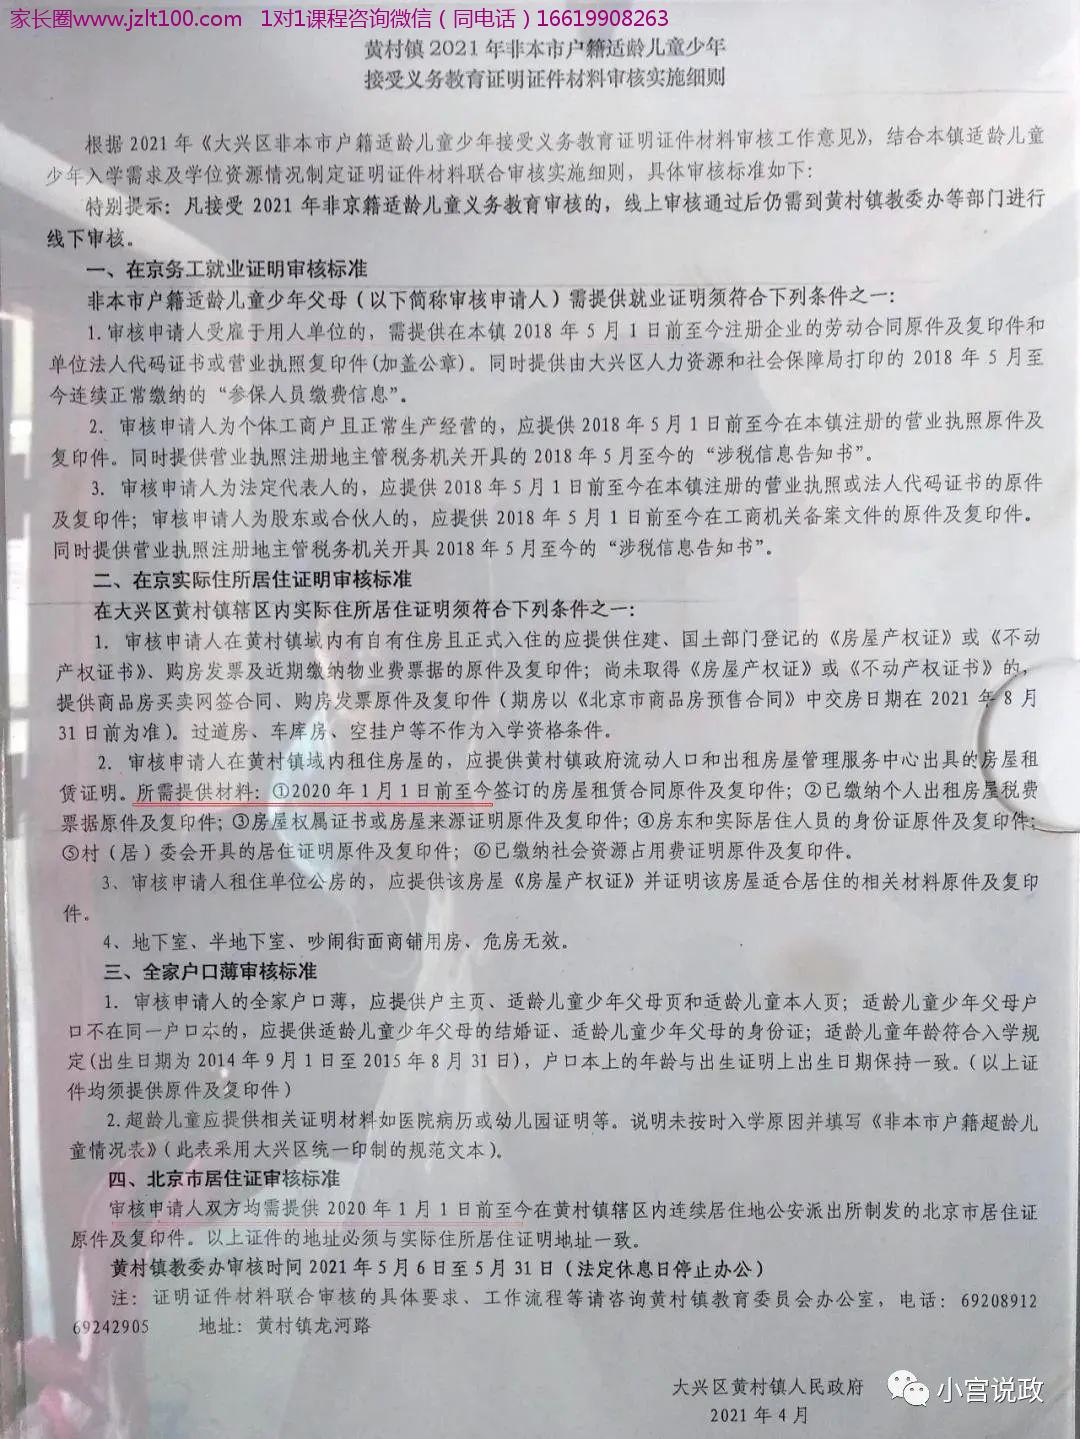 家长圈www.jzlt100.com 1对1课程咨询微信（同电话）16619908263
黄村镇 2021 年非本市户籍适龄儿童少年
接受义务教育证明证件材料审核实施细则
根据 2021 年《大兴区非本市户籍适龄儿童少年接受义务教育证明证件材料审核工作意见》，结合本镇适龄儿童
少年入学需求及学位资源情况制定证明证件材料联合审核实施细则，具体审核标准如下：
特别提示：凡接受 2021 年非京籍适龄儿童义务教育审核的，线上审核通过后仍需到黄村镇教委办等部门进行
线下审核。
一、在京务工就业证明审核标准
非本市户籍适龄儿童少年父母（以下简称审核申请人）需提供就业证明须符合下列条件之一：
1.审核申请人受雇于用人单位的，需提供在本镇 2018 年 5 月 1 日前至今注册企业的劳动合同原件及复印件和
单位法人代码证书或营业执照复印件(加盖公章)。同时提供由大兴区人力资源和社会保障局打印的 2018 年 5 月至
今连续正常缴纳的“参保人员缴费信息”。
2. 审核申请人为个体工商户且正常生产经营的，应提供 2018 年 5 月 1 日前至今在本镇注册的营业执照原件及
复印件。同时提供营业执照注册地主管税务机关开具的 2018 年 5 月至今的“涉税信息告知书”。
3. 审核申请人为法定代表人的，应提供 2018 年 5 月 1 日前至今在本镇注册的营业执照或法人代码证书的原件
及复印件；审核申请人为股东或合伙人的，应提供 2018 年 5 月 1 日前至今在工商机关备案文件的原件及复印件。
同时提供营业执照注册地主管税务机关开具 2018 年 5 月至今的“涉税信息告知书”。
二、在京实际住所居住证明审核标准
在大兴区黄村镇辖区内实际住所居住证明须符合下列条件之一：
1. 审核申请人在黄村镇域内有自有住房且正式入住的应提供住建、国土部门登记的《房屋产权证》或《不动
产权证书》、购房发票及近期缴纳物业费票据的原件及复印件；尚未取得《房屋产权证》或《不动产权证书》的，
提供商品房买卖网签合同、购房发票原件及复印件（期房以《北京市商品房预售合同》中交房日期在 2021 年 8 月
31 日前为准）。过道房、车库房、空挂户等不作为入学资格条件。
2. 审核申请人在黄村镇域内租住房屋的，应提供黄村镇政府流动人口和出租房屋管理服务中心出具的房屋租
赁证明。所需提供材料：①2020 年 1 月 1 日前至今签订的房屋租赁合同原件及复印件；②已缴纳个人出租房屋税费
票据原件及复印件；③房屋权属证书或房屋来源证明原件及复印件；④房东和实际居住人员的身份证原件及复印件；
⑤村（居）委会开具的居住证明原件及复印件；⑥已缴纳社会资源占用费证明原件及复印件。
3、审核申请人租住单位公房的，应提供该房屋《房屋产权证》并证明该房屋适合居住的相关材料原件及复印
件。
4、地下室、半地下室、吵闹街面商铺用房、危房无效。
三、全家户口薄审核标准
1. 审核申请人的全家户口薄，应提供户主页、适龄儿童少年父母页和适龄儿童本人页；适龄儿童少年父母户
口不在同一户口本的，应提供适龄儿童少年父母的结婚证、适龄儿童少年父母的身份证；适龄儿童年龄符合入学规
定(出生日期为 2014 年 9 月 1 日至 2015 年 8 月 31 日)，户口本上的年龄与出生证明上出生日期保持一致。（以上证
件均须提供原件及复印件）
2.超龄儿童应提供相关证明材料如医院病历或幼儿园证明等。说明未按时入学原因并填写《非本市户籍超龄儿
童情况表》（此表采用大兴区统一印制的规范文本）。
四、北京市居住证审核标准
审核申请人双方均需提供 2020 年 1 月 1 日前至今在黄村镇辖区内连续居住地公安派出所制发的北京市居住证
原件及复印件。以上证件的地址必须与实际住所居住证明地址一致。
黄村镇教委办审核时间 2021 年 5 月 6 日至 5 月 31 日（法定休息日停止办公）
注：证明证件材料联合审核的具体要求、工作流程等请咨询黄村镇教育委员会办公室，电话：69208912
69242905 地址：黄村镇龙河路
大兴区黄村镇人民政府
2021 年 4 月
小宫说政